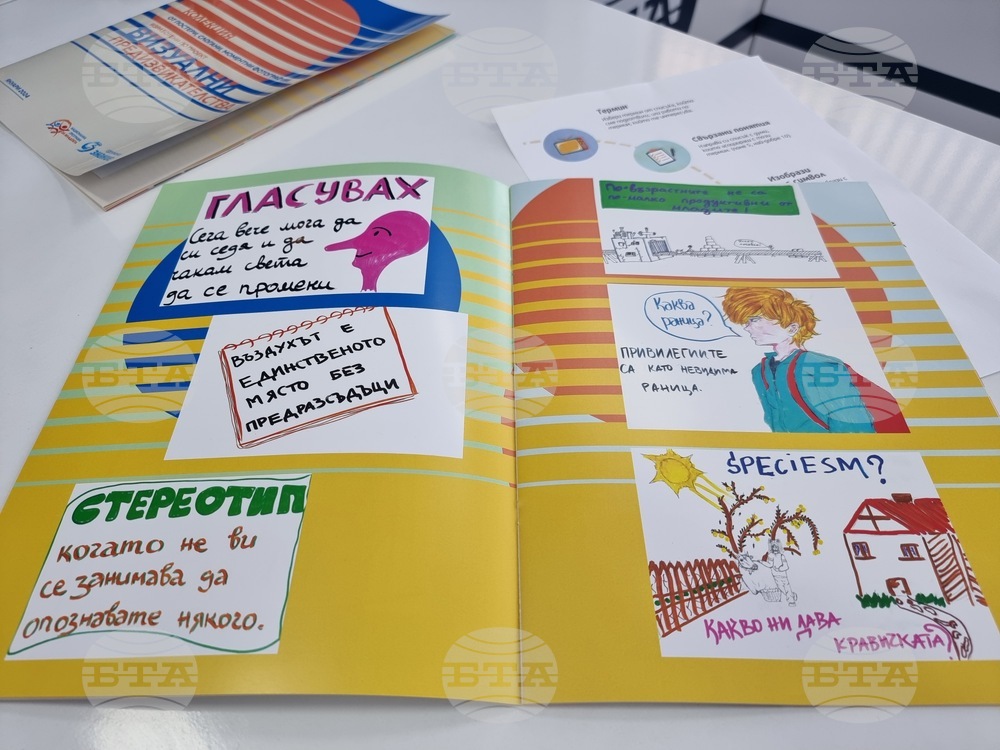 КОЛЕКЦИЯ
ВИЗУАЛНИ
ПРЕДИЗВИКАТЕЛСТВА
БТА
Термин
Свързани понятия
Изобрази
символ
ГЛАСУВАХ
Сега вече мога да
си седя и да
чакам света
да се промени
ВЪЗДУХЪТ Е
ЕДИНСТВЕНОТО
МЯСТО БЕЗ
ПРЕДРАЗСЪДЪЦИ
СТЕРЕОТИП
когато не ви
се занимава да
опознавате някого.
По-възрастните не са
по-малко продуктивни от
младите!
Каква
раница?
ПРИВИЛЕГИИТЕ
СА КАТО НЕВИДИМА
РАНИЦА.
SPECIESM?
КАКВО НИ ДАВА
КРАВИЧКАТА?